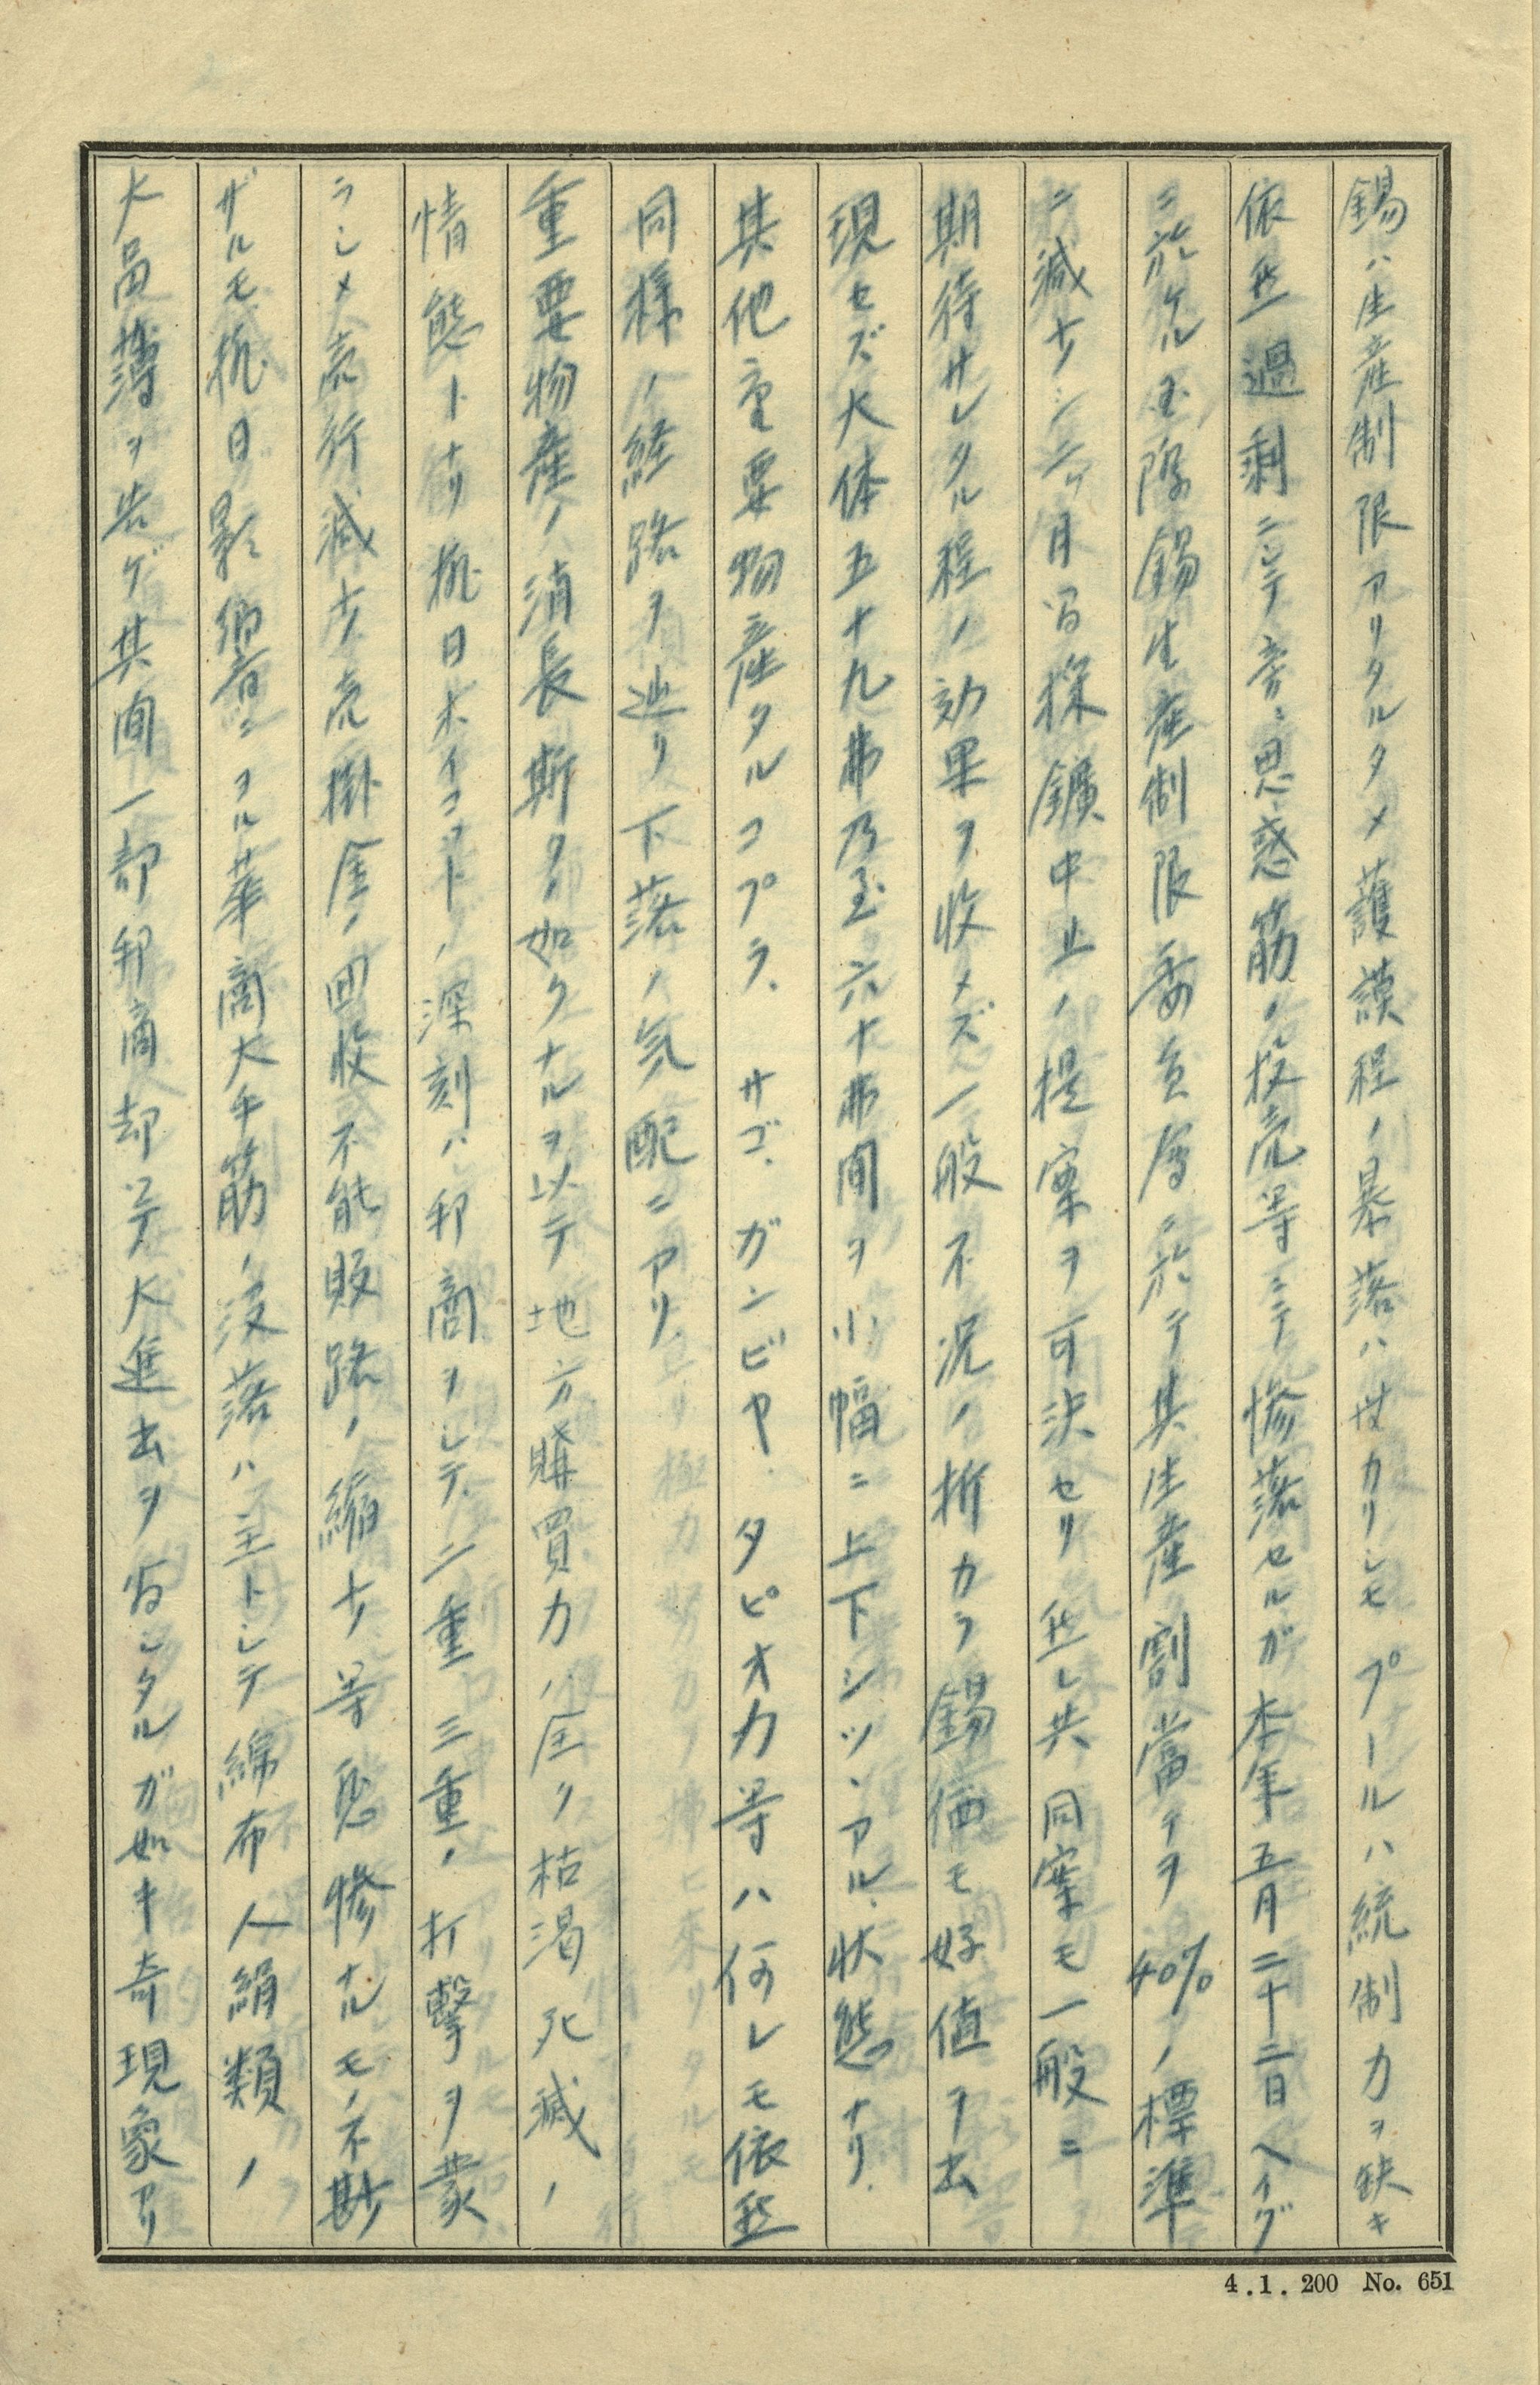 錫ハ生産制限アリタルタメ護謨程ノ暴落ハ世カリシモプールハ統制力ヲ缺キ
依然過剰ニシテ旁々思惑筋ノ投売等ニテ惨落セルガ本年五月二十二日ヘイグ
ニ於ケル国際錫生産制限委員会ニ於テ其生産割当テヲ40%ノ標準
ニ減少シ二ヶ月間採鑛中止ノ提案ヲ可決セリ然レ共同案モ一般ニ
期待サレタル程ノ効果ヲ收メズ一般不況ノ折カラ錫価モ好値ヲ出
現セズ大体五十九弗乃至六十弗間ヲ小幅ニ上下シツヽアル状態ナリ.
其他重要物産タルコプラ.サゴ.ガンビヤ.タピオカ等ハ何レモ依然
同様ノ経路ヲ辿リ下落ノ気配ニアリ.
重要物産ノ消長斯クノ如クナルヲ以テ地方購買力ノ全ク枯渇死滅ノ
情態トナリ排日ボイコットノ深刻ハ邦商ヲシテ二重三重ノ打撃ヲ蒙
ラシメ売行減少売掛金ノ回收不能販路ノ縮少等悲惨ナルモノ不尠
ザルモ排日影響ニヨル華商大手筋ノ没落ハ主トシテ綿布人絹類ノ
大品薄ヲ告ゲ其間一部邦商却ツテ大進出ヲ為シタルガ如キ奇現象アリ
4.1.200 No. 651